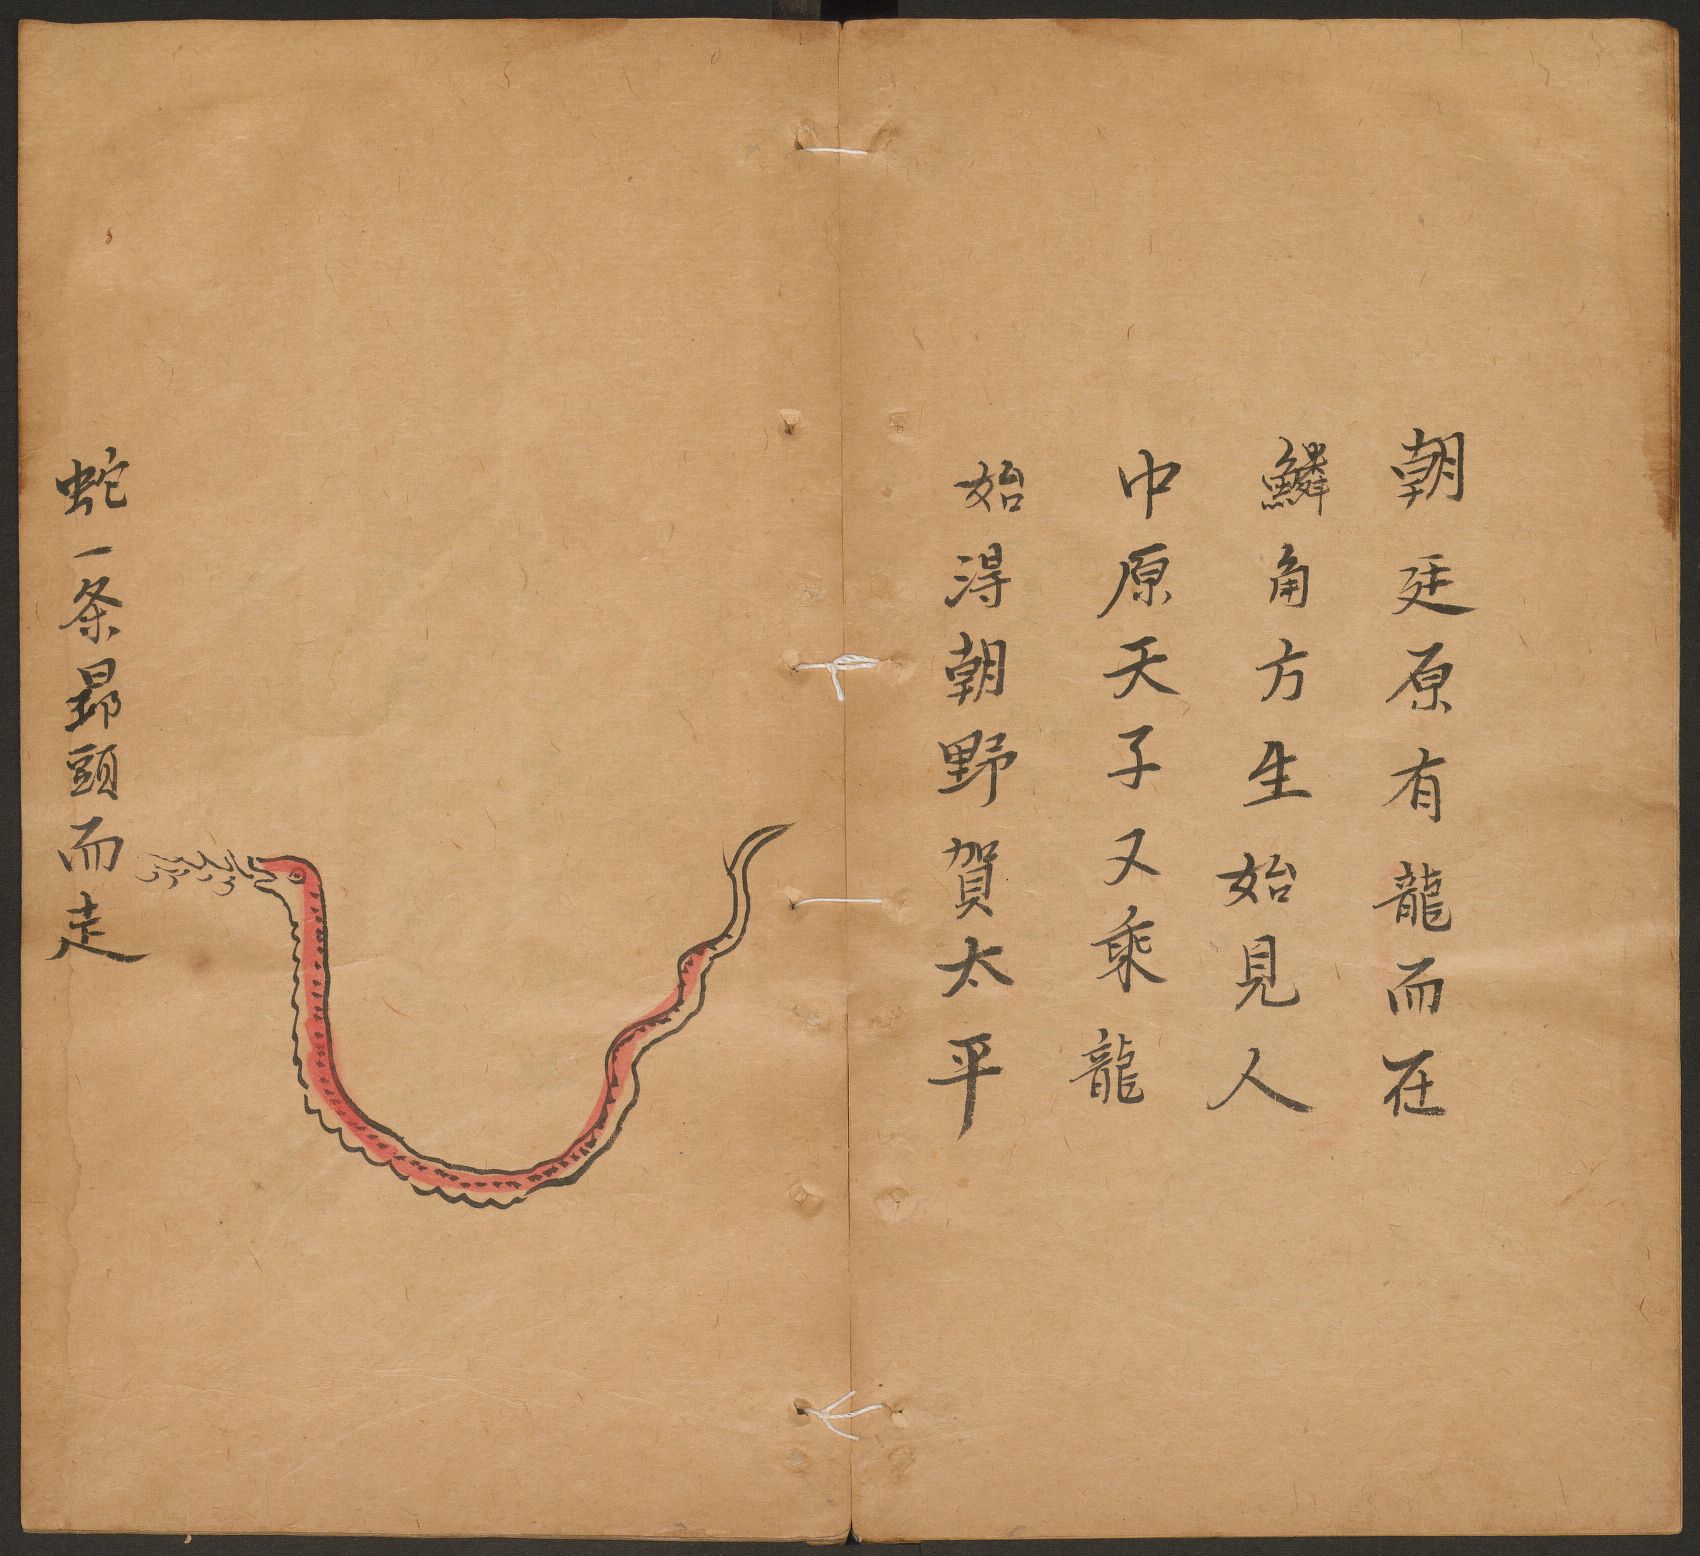 朝廷原有龍而在
鱗角方生始見人
中原天子又乘龍
始淂朝野賀太平
蛇一条昴頭而走